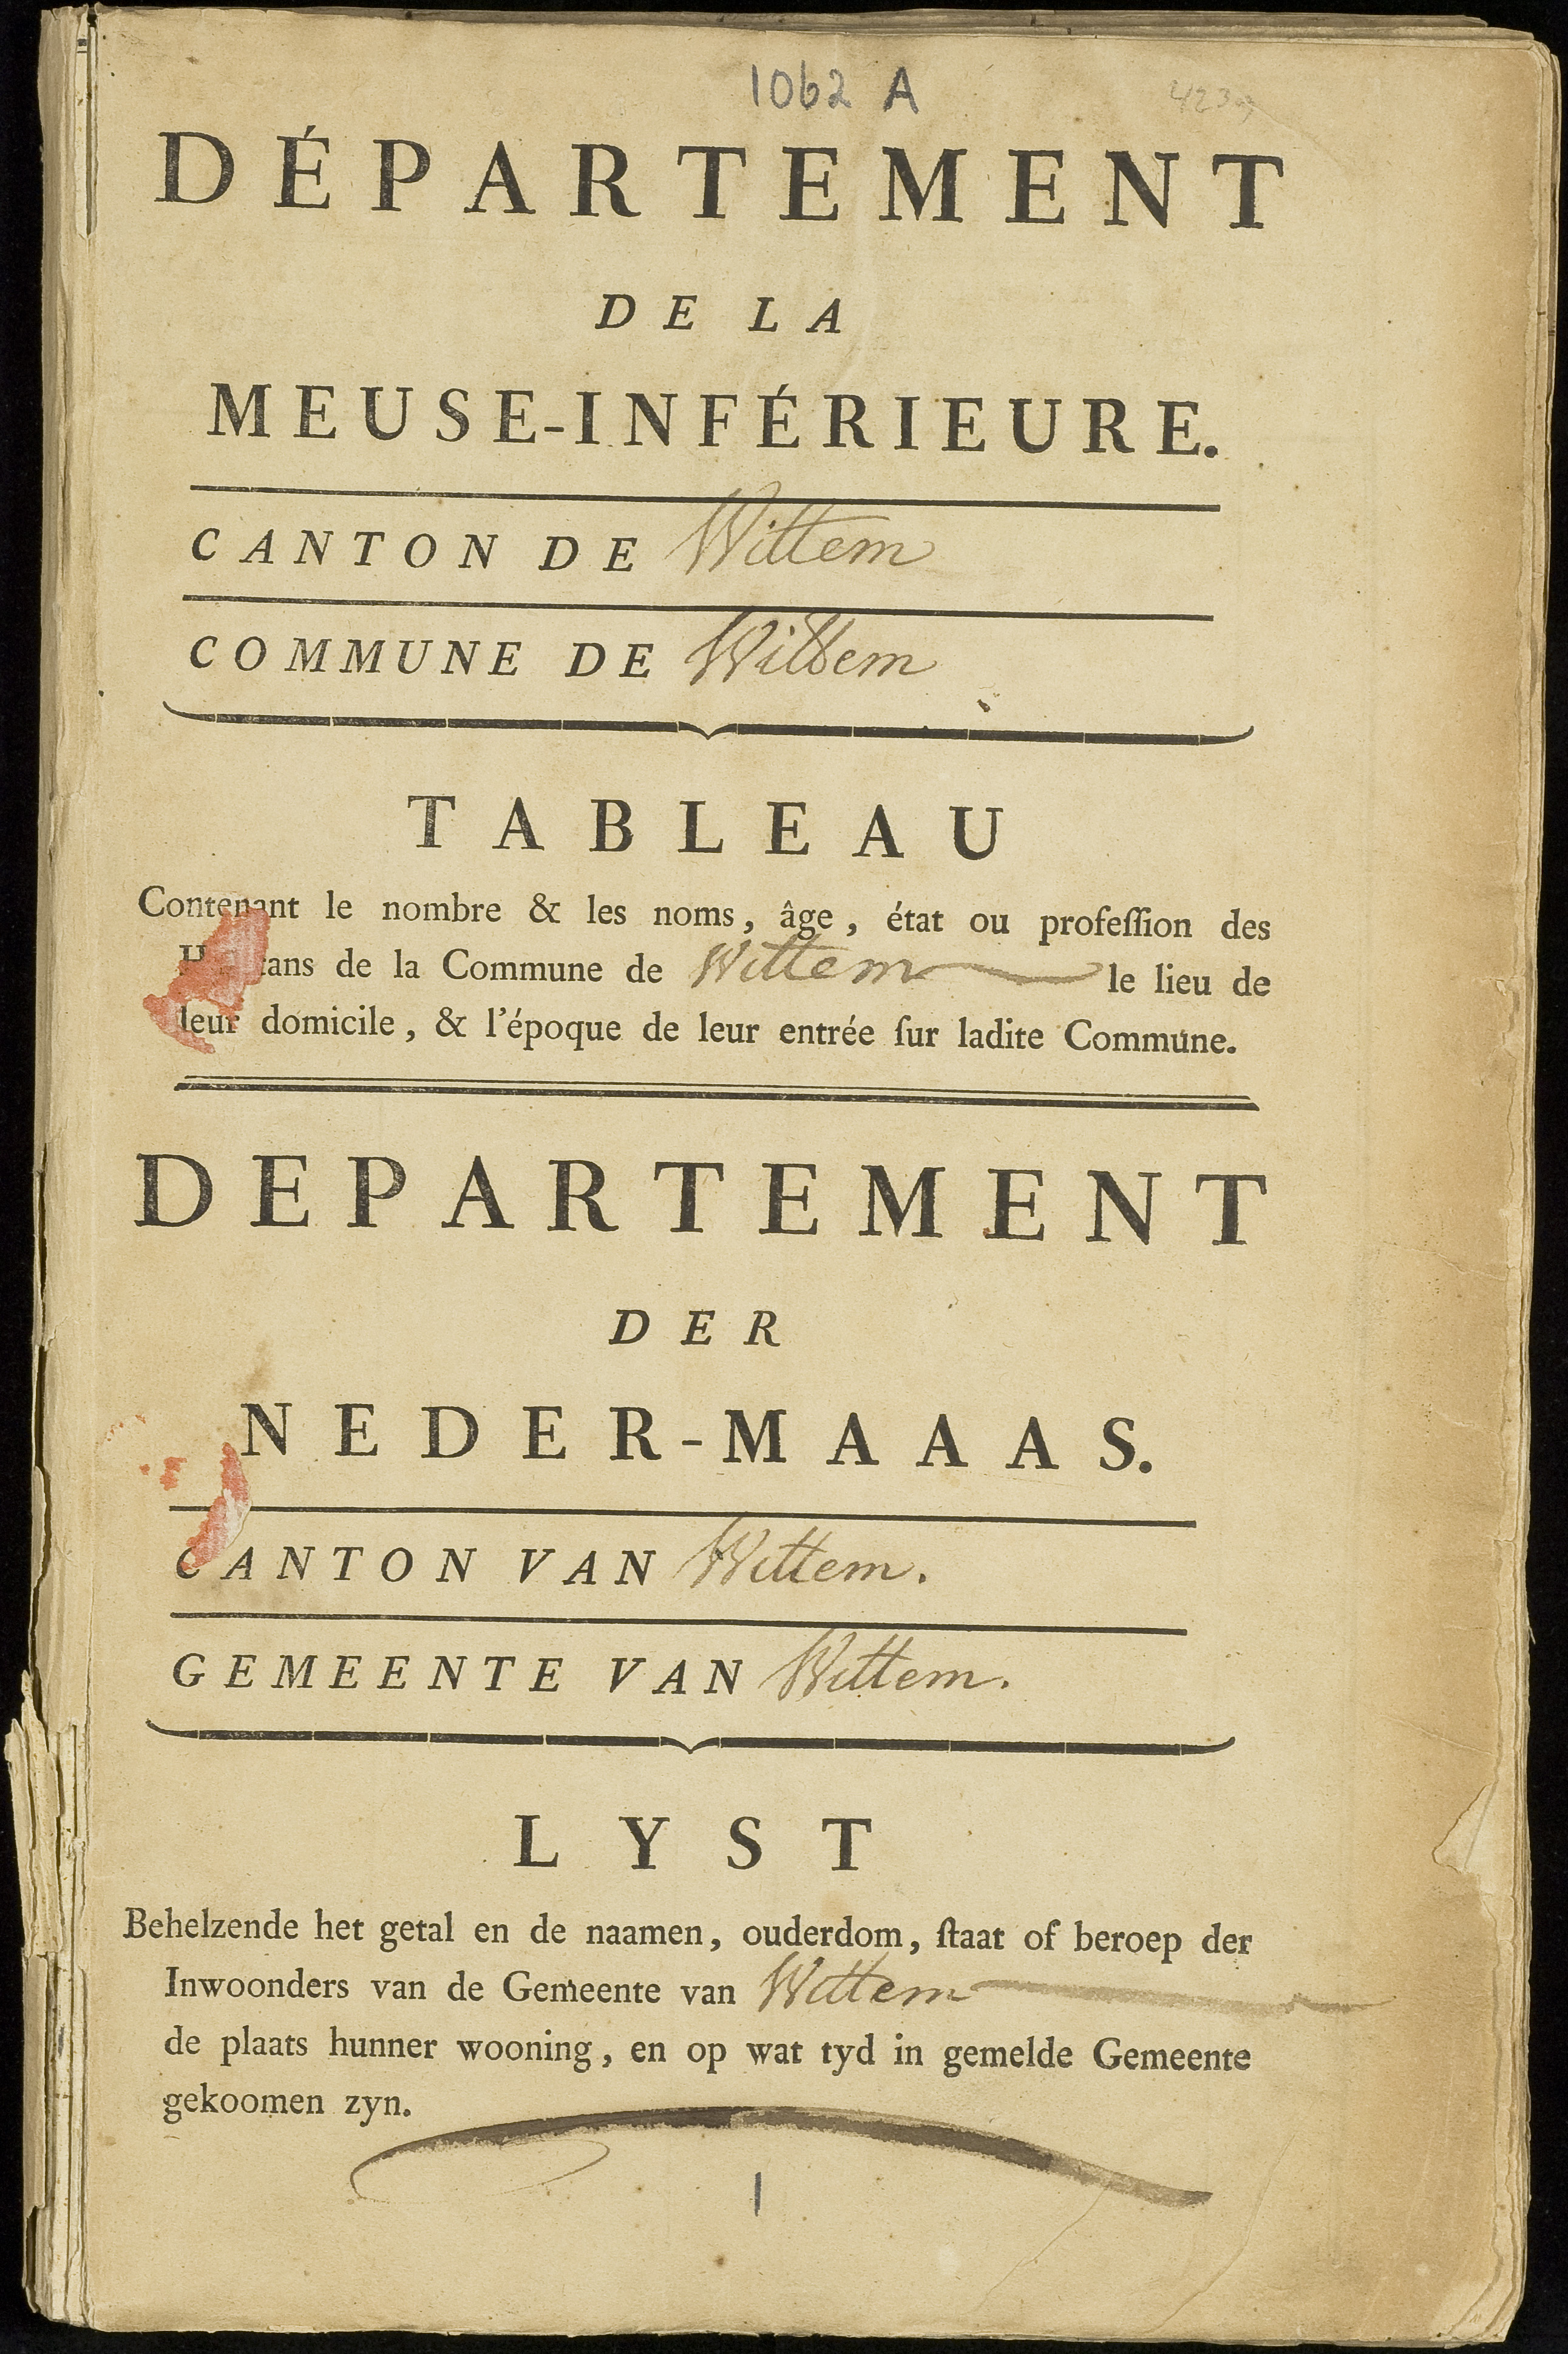 1062 A
DÉPARTEMENT
DE LA
MEUSE-INFÉRIEURE.
CANTON DE Wittem
COMMUNE DE Wittem
TABLEAU
Contenant le nombre & les noms, âge, état ou profeſſion des
de la Commune de Wittem le lieu de
leur domicile, & l'époque de leur entrée ſur ladite Commune.
DEPARTEMENT
DER
NEDER-MAAAS.
CANTON VAN Wittem.
GEMEENTE VAN Wittem.
LYST
Behelzende het getal en de naamen, ouderdom, ſtaat of beroep der
Inwoonders van de Gemeente van Wittem
de plaats hunner wooning, en op wat tyd in gemelde Gemeente
gekoomen zyn.
1